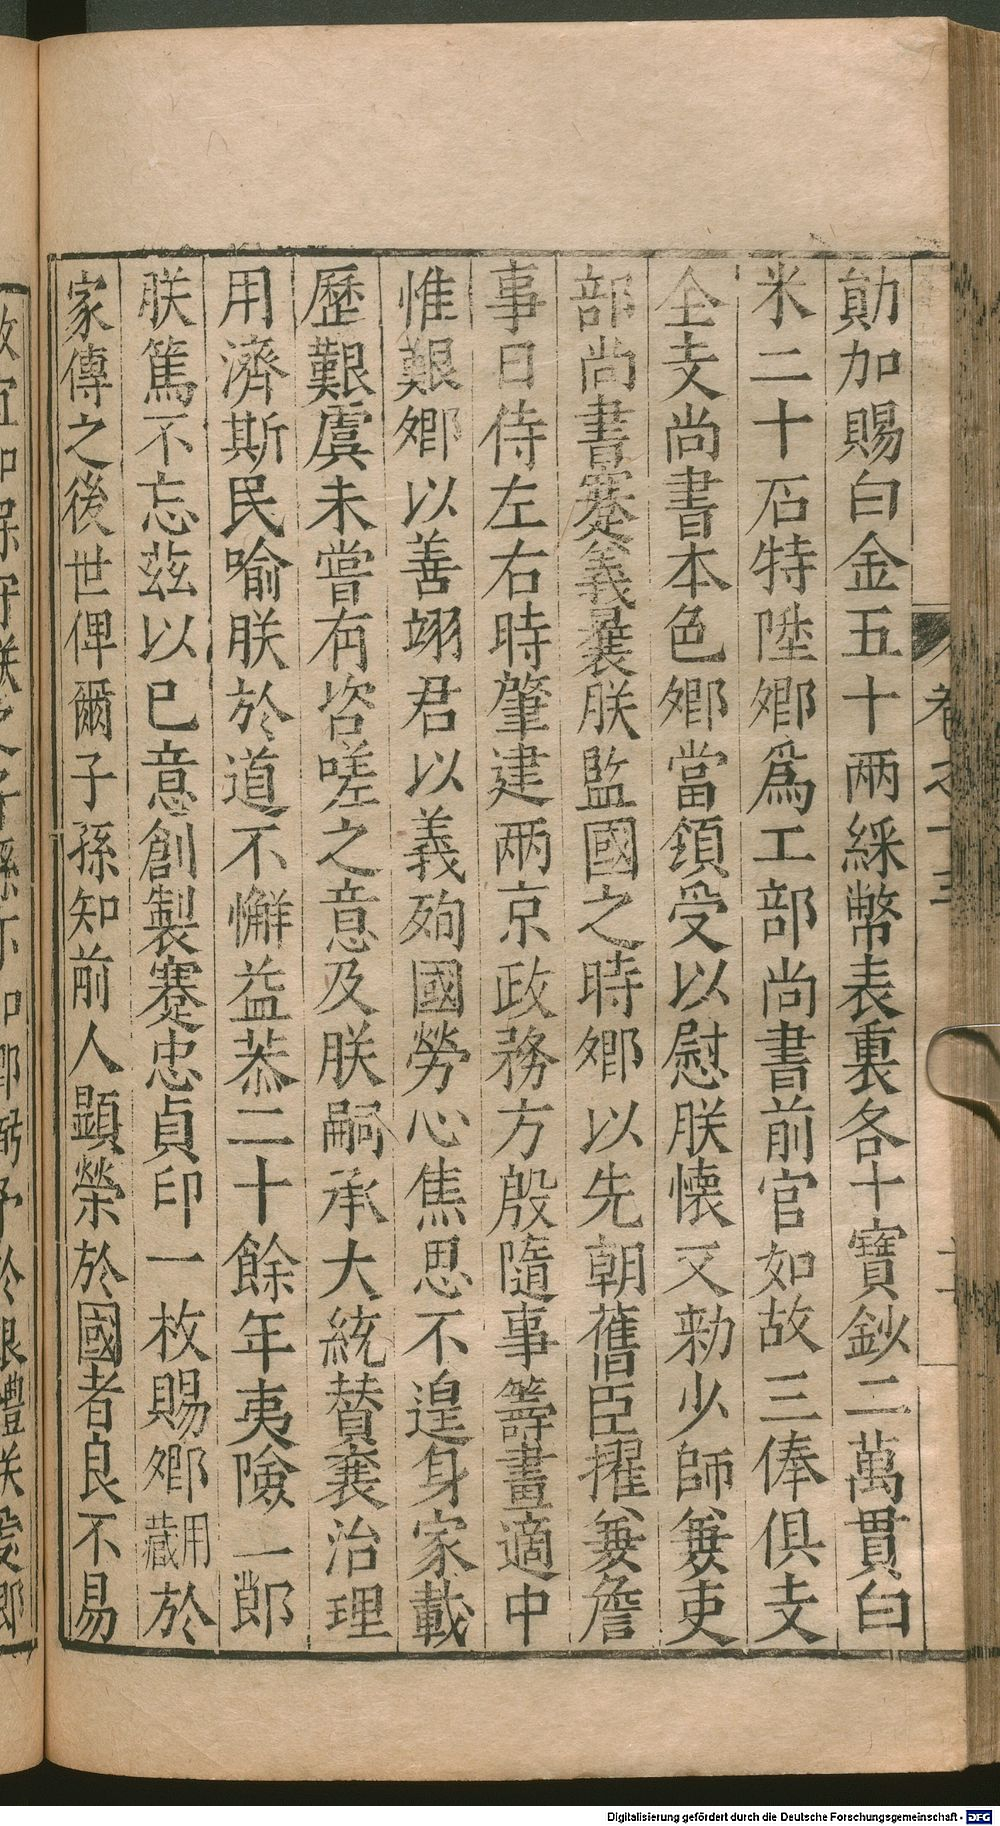 勛加賜白金五十兩綵幣表裏各十寶鈔二萬貫白
米二十石特陞卿爲工部尚書前官如故三俸俱支
全支尚書本色卿當領受以慰朕懷又勑少師兼吏
部尚書蹇義曩朕監國之時卿以先朝舊臣擢兼詹
事日侍左右時肇建兩京政務方殷隨事籌畫適中
惟艱卿以善翊君以義殉國勞心焦思不遑身家載
歷艱虞未嘗有咨嗟之意及朕嗣承大統贊襄治理
用濟斯民喻朕於道不懈益恭二十餘年夷險一郎
朕篤不忘茲以已意創製蹇忠貞印一枚賜卿藏用於
家傳之後世俾爾子孫知前人顯榮於國者良不易
卷之十
Digitalisierung gefördert durch die Deutsche Forschungsgemeinschaft - DFG